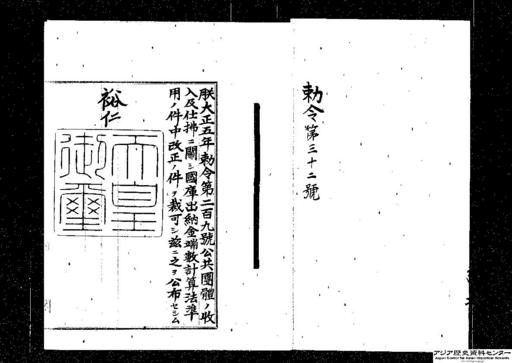 勅令第三十二號
朕大正五年勅令第二百九號公共團體ノ收
入及仕拂ニ關シ國庫出納金端數計算法準
用ノ件中改正ノ件ヲ裁可シ茲ニ之ヲ公布セシム
裕仁
天皇
御璽
アジア歴史資料センター
Japan Center for Asian Historical Records